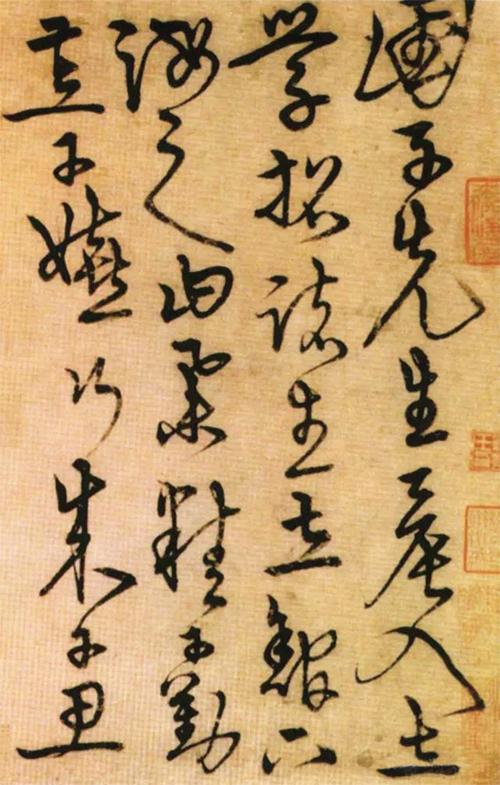 國子先生晨入太
学招諸生立館下
誨之曰業精于勤
荒于嬉行成于思